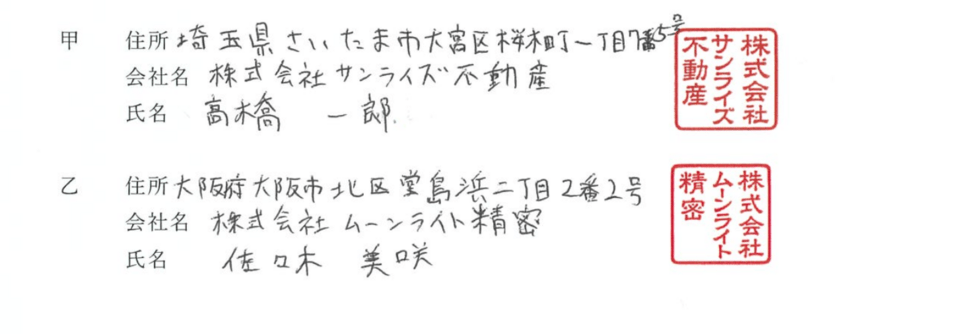 甲 住所 埼玉県さいたま市大宮区桜木町一丁目7番5号
会社名 株式会社サンライズ不動産
氏名 高橋 一郎
株式会社
サンライズ
不動産
乙 住所 大阪府大阪市北区堂島浜二丁目2番2号
会社名 株式会社ムーンライト精密
氏名 佐々木 美咲
株式会社
ムーンライト
精密